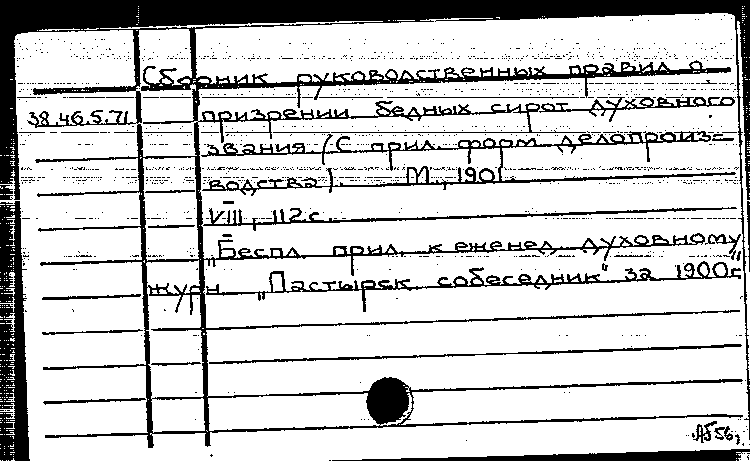 Сборник руководственных правил о
38.46.5.71. призрении бедных сирот духовного
звания (С прил. форм делопроиз-
водства). М., 1901.
VIII, 112 с.
„Беспл. прил. к еженед. духовному
журн. „Пастырск. собеседник" за 1900 г."